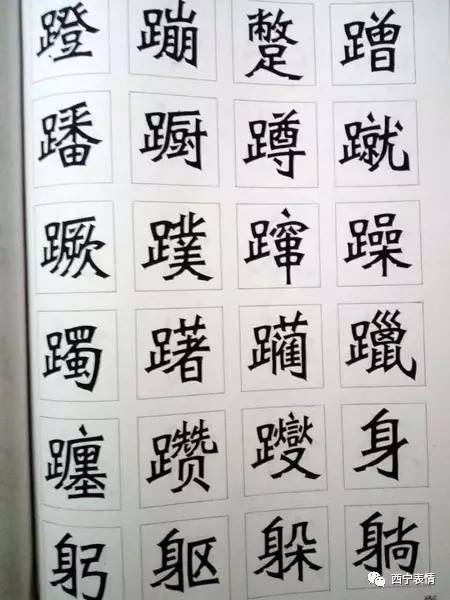 蹬 蹦 蹩 蹭
蹯 蹰 蹲 蹴
蹶 蹼 蹿 躁
躅 躇 躏 躐
躔 躜 躞 身
躬 躯 躲 躺
西宁表情